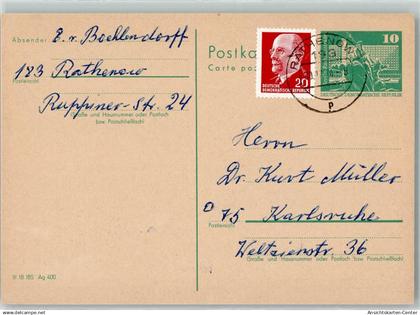 Absender:
E. v. Boehlendorff
183 Rathenow
Postleitzahl
Ruppiner-Str. 24
Straße und Hausnummer oder Postfach
bzw. Postschließfach
III 18 185 Ag 400
Postka
Carte pos
RATHENOW
20
DEUTSCHE
DEMOKRATISCHE REPUBLIK
10
DEUTSCHE DEMOKRATISCHE REPUBLIK
p
Herrn
Dr. Kurt Müller
D 75 Karlsruhe
Postleitzahl
Weltzienstr. 36
Straße und Hausnummer oder Postfach bzw. Postschließfach
Ansichtskarten-Center